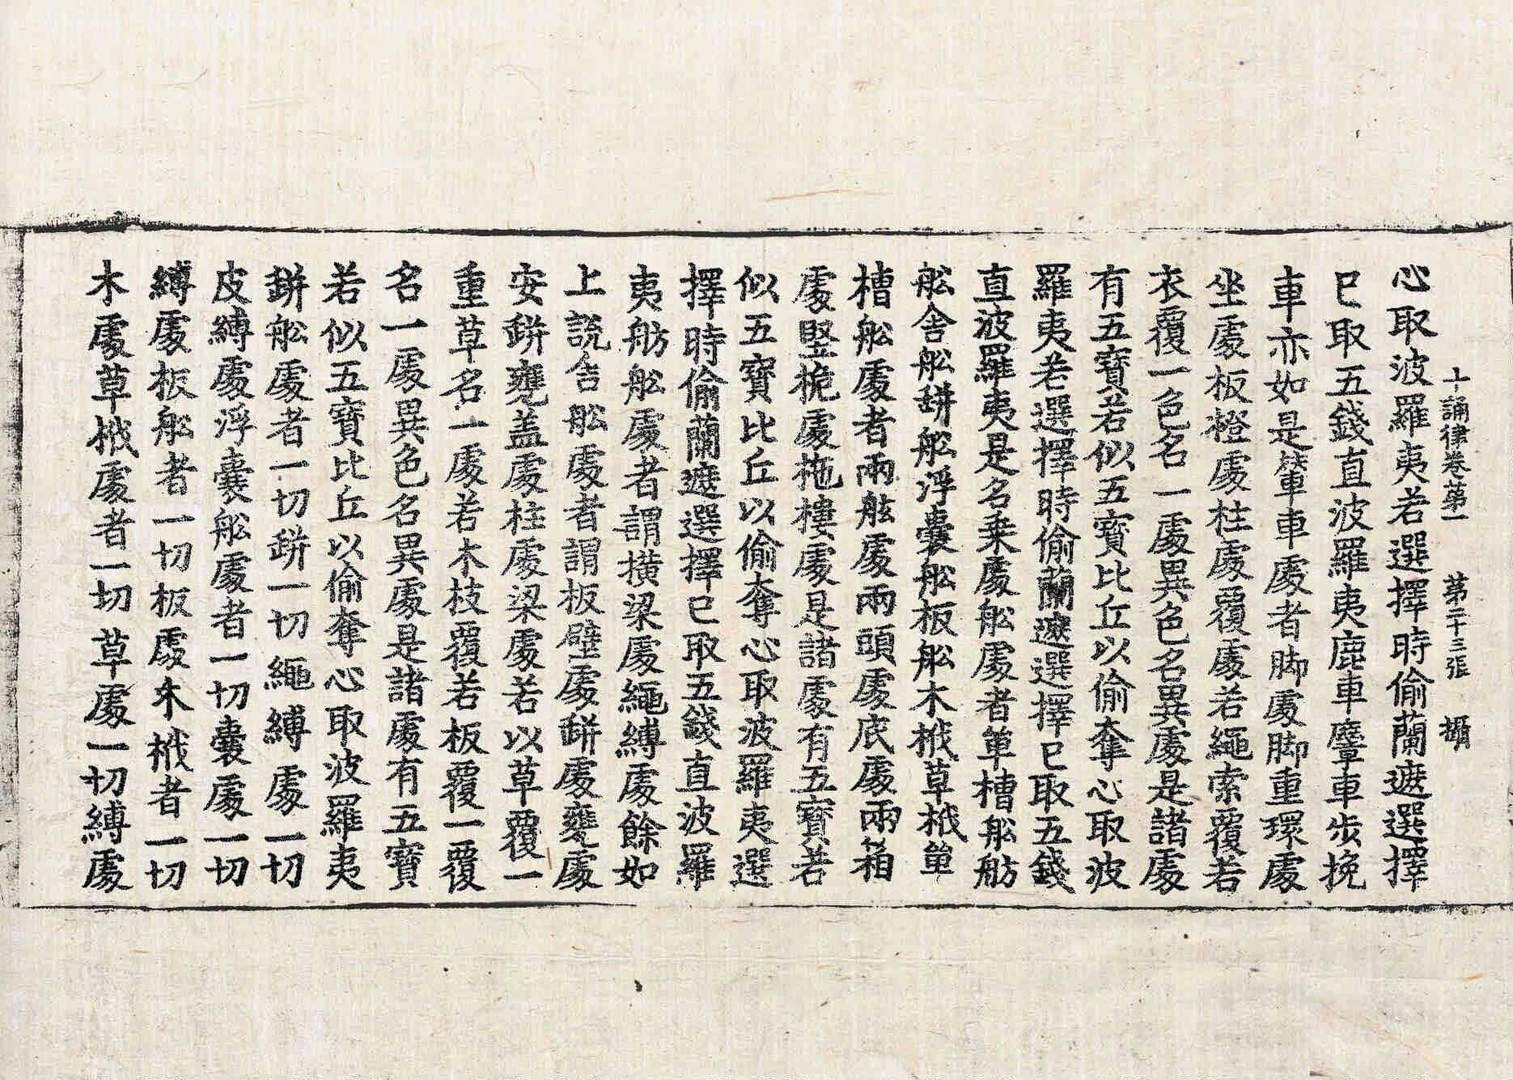 十誦律卷第一 第二十三張 攝
心取波羅夷若選擇時偷蘭遮選擇
已取五錢直波羅夷鹿車輦車步挽
車亦如是輦車處者脚處脚重環處
坐處板橙處柱處覆處若繩索覆若
衣覆一色名一處異色名異處是諸處
有五寶若似五寶比丘以偷奪心取波
羅夷若選擇時偷蘭遮選擇已取五錢
直波羅夷是名乗處舩處者單槽舩舫
舩舎舩缾舩浮囊舩板舩木栰草栰單
槽舩處者兩舷處兩頭處底處兩箱
處竪桅處柂樓處是諸處有五寶若
似五寶比丘以偷奪心取波羅夷選
擇時偷蘭遮選擇已取五錢直波羅
夷舫舩處者謂横梁處繩縛處餘如
上說舎舩處者謂板壁處缾處甕處
安缾甕盖處柱處梁處若以草覆一
重草名一處若木枝覆若板覆一覆
名一處異色名異處是諸處有五寶
若似五寶比丘以偷奪心取波羅夷
缾舩處者一切缾一切繩縛處一切
皮縛處浮囊舩處者一切囊處一切
縛處板舩者一切板處木栰者一切
木處草栰處者一切草處一切縛處